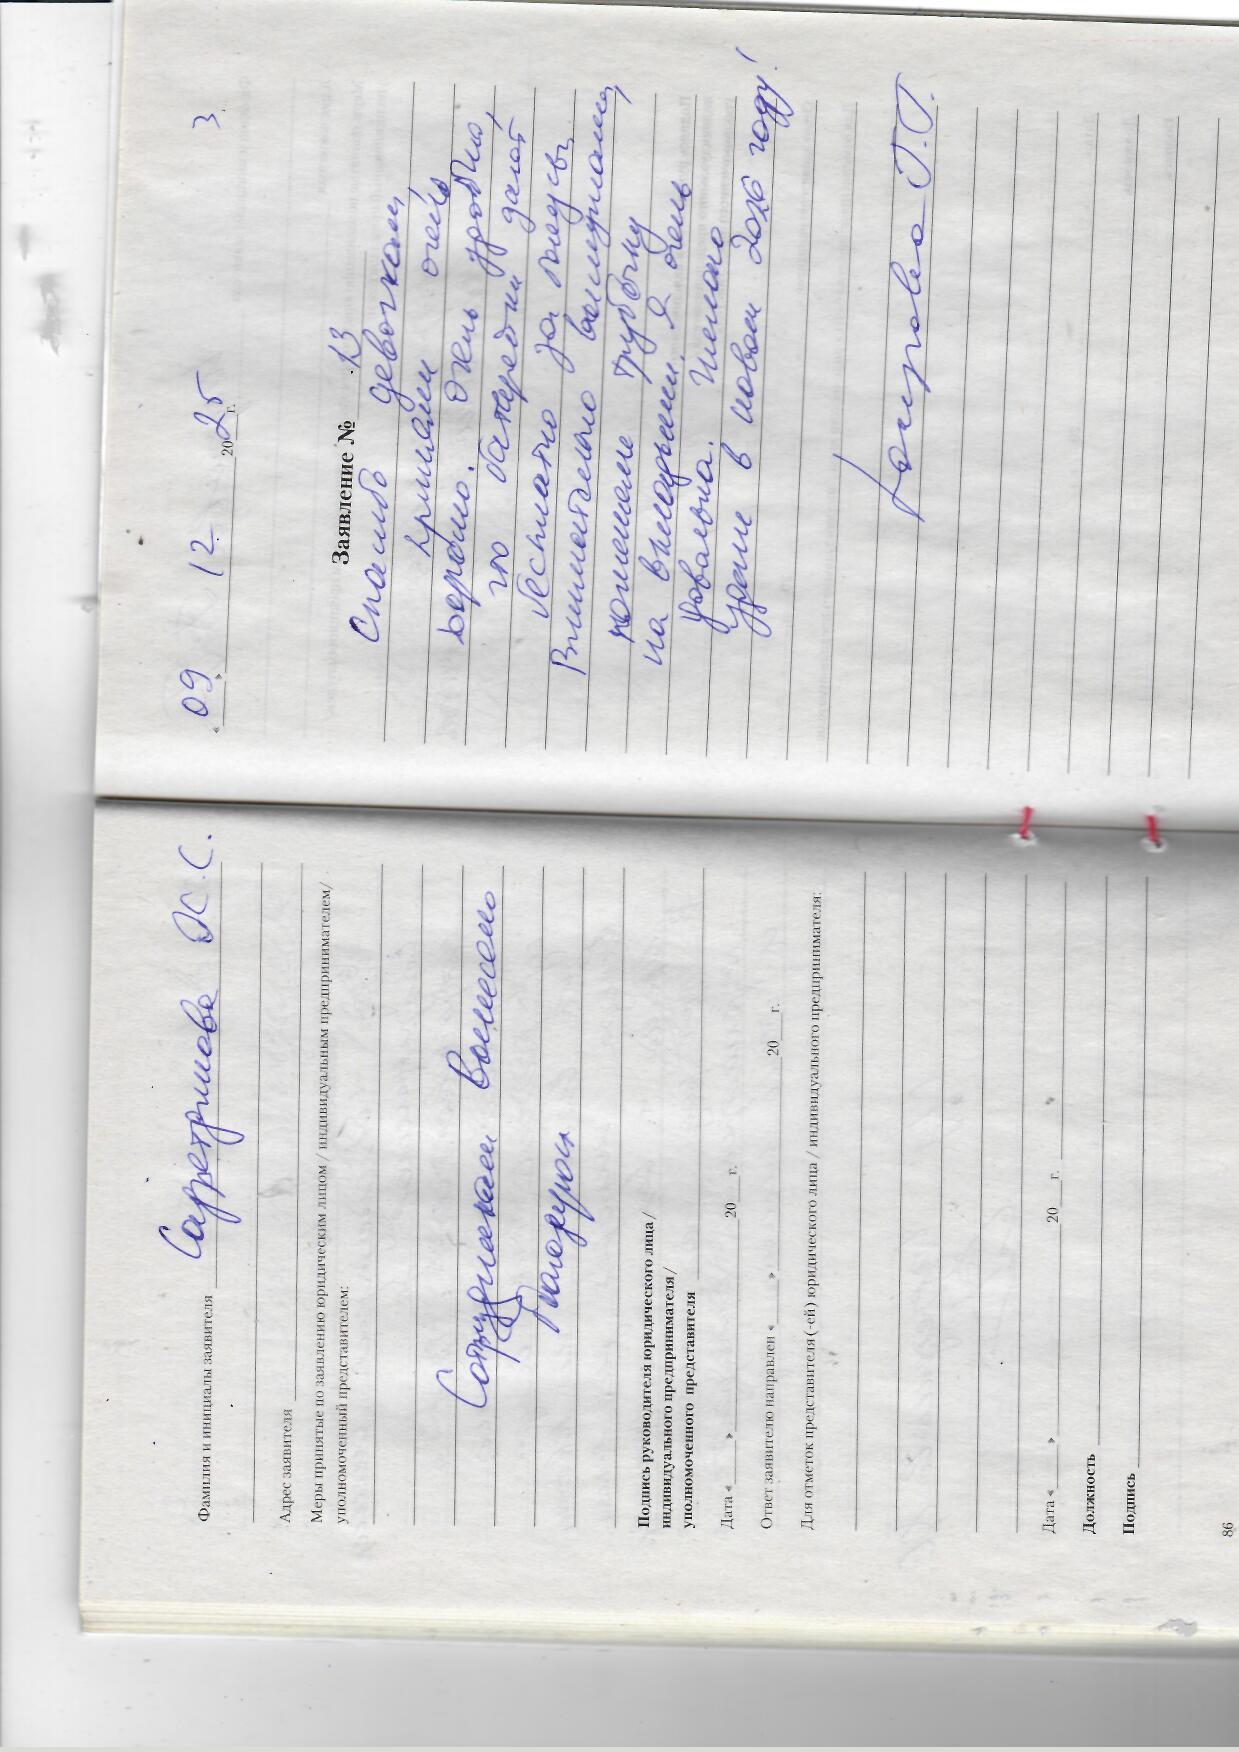 Фамилия и инициалы заявителя Сафетрикова Ж.С.
Адрес заявителя
Меры принятые по заявлению юридическим лицом / индивидуальным предпринимателем/
уполномоченный представителем:
Сотрудникам Вынесено
Благодарность
Подпись руководителя юридического лица /
индивидуального предпринимателя /
уполномоченного представителя
Дата « » 20 г.
Ответ заявителю направлен « » 20 г.
Для отметок представителя (-ей) юридического лица / индивидуального предпринимателя:
Дата « » 20 г.
Должность
Подпись
86
3
« 09 » 12 2025 г.
Заявление № 13
Спасибо девочкам,
приняли очень
хорошо. Очень удобно,
что батарейки дают
бесплатно за отзывы,
Внимательно выслушали,
почистили трубочку
на вкладыши. Я очень
довольна. Желаю
удачи в новом 2026 году!